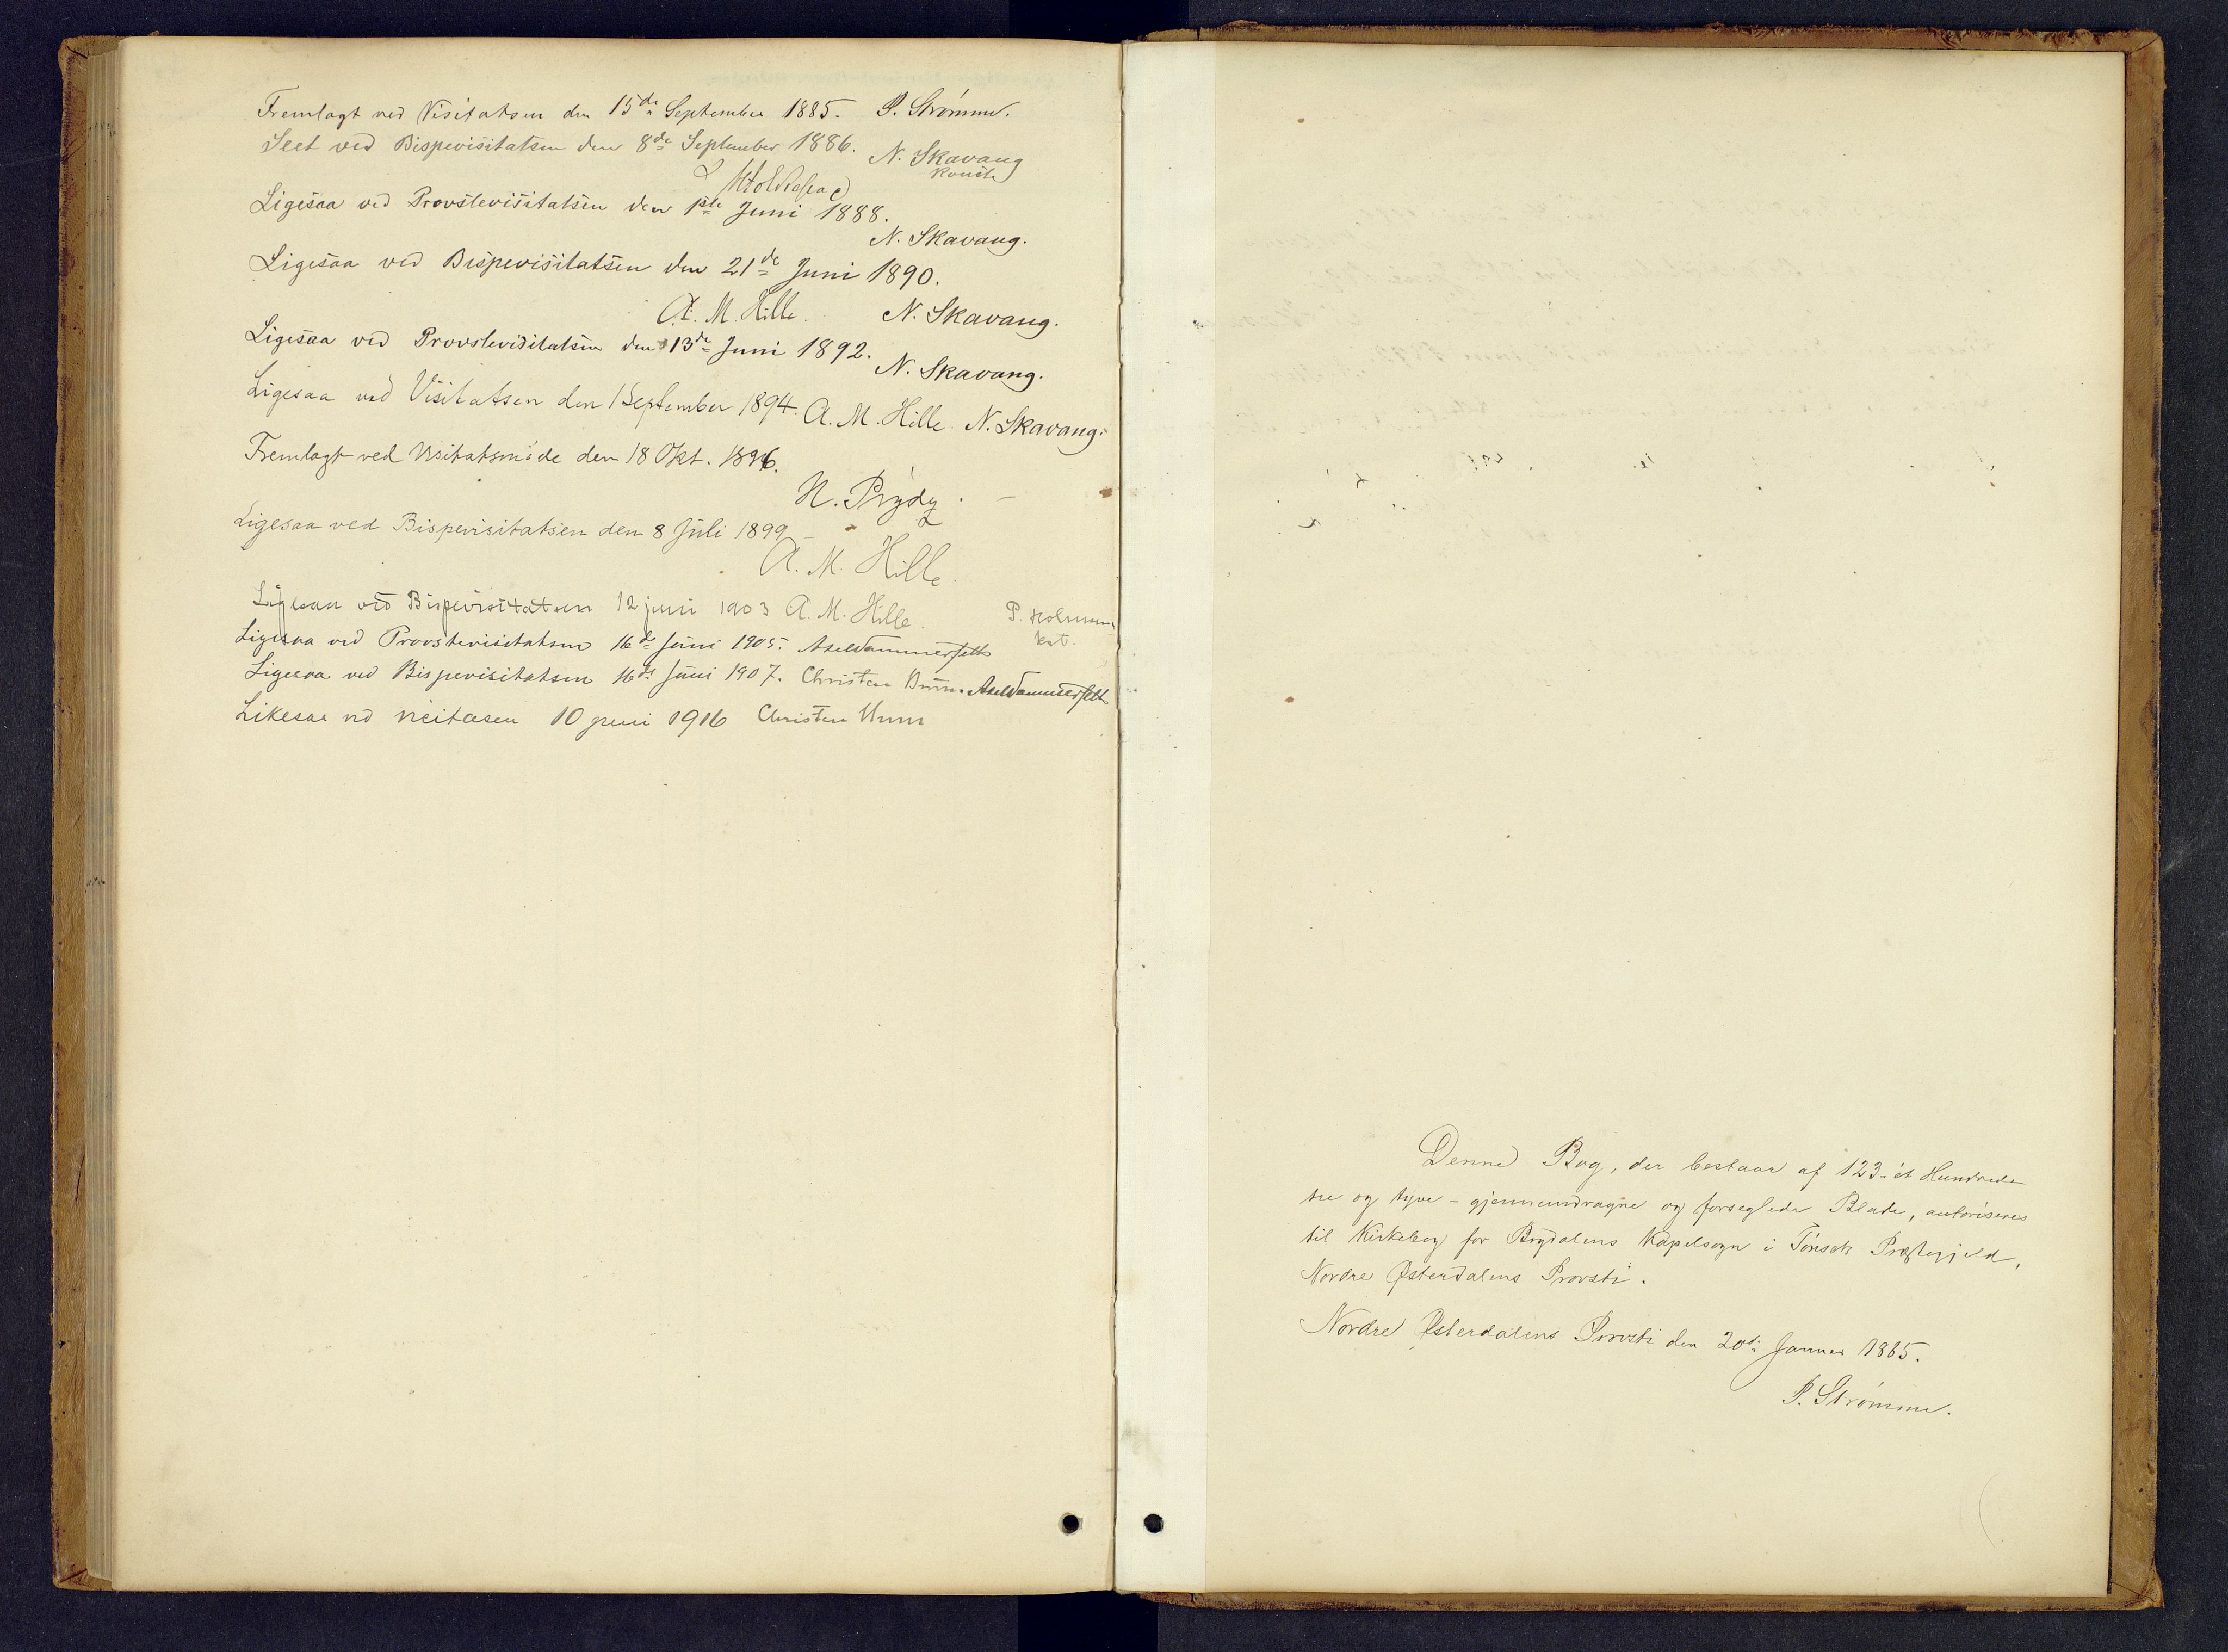 Fremlagt ved Visitatsen den 15de September 1885. P. Strømme.
Seet ved Bispevisitatsen den 8de September 1886. N. Skavang
konst.
Ligesaa ved Provstevisitatsen den 1ste Juni 1888.
N. Skavang.
Ligesaa ved Bispevisitatsen den 21de Juni 1890.
A. M. Hille. N. Skavang.
Ligesaa ved Provstevisitatsen den 13de Juni 1892.
N. Skavang.
Ligesaa ved Visitatsen den 1 September 1894. A. M. Hille. N. Skavang.
Fremlagt ved Visitatsmöde den 18 Okt. 1896.
N. Prydz.
Ligesaa ved Bispevisitatsen den 8 Juli 1899
A. M. Hille.
Ligesaa ved Bispevisitatsen 12 juni 1903 A. M. Hille. P. Holmsen
kst.
Ligesaa ved Provstevisitatsen 16de Juni 1905. Axel Dammerfelt
Ligesaa ved Bispevisitatsen 16de Juni 1907. Christen Brun. Axel Dammerfelt
Likesaa ved visitasen 10 juni 1916 Christen Brun
Denne Bog, der bestaar af 123 - et Hundrede
tre og tyve - gjennemdragne og forseglede Blade, autoriseres
til Kirkebog for Brydalens Kapelsogn i Tönsets Præstegjeld,
Nordre Østerdalens Provsti.
Nordre Østerdalens Provsti den 20de Januar 1885.
P. Strømme.